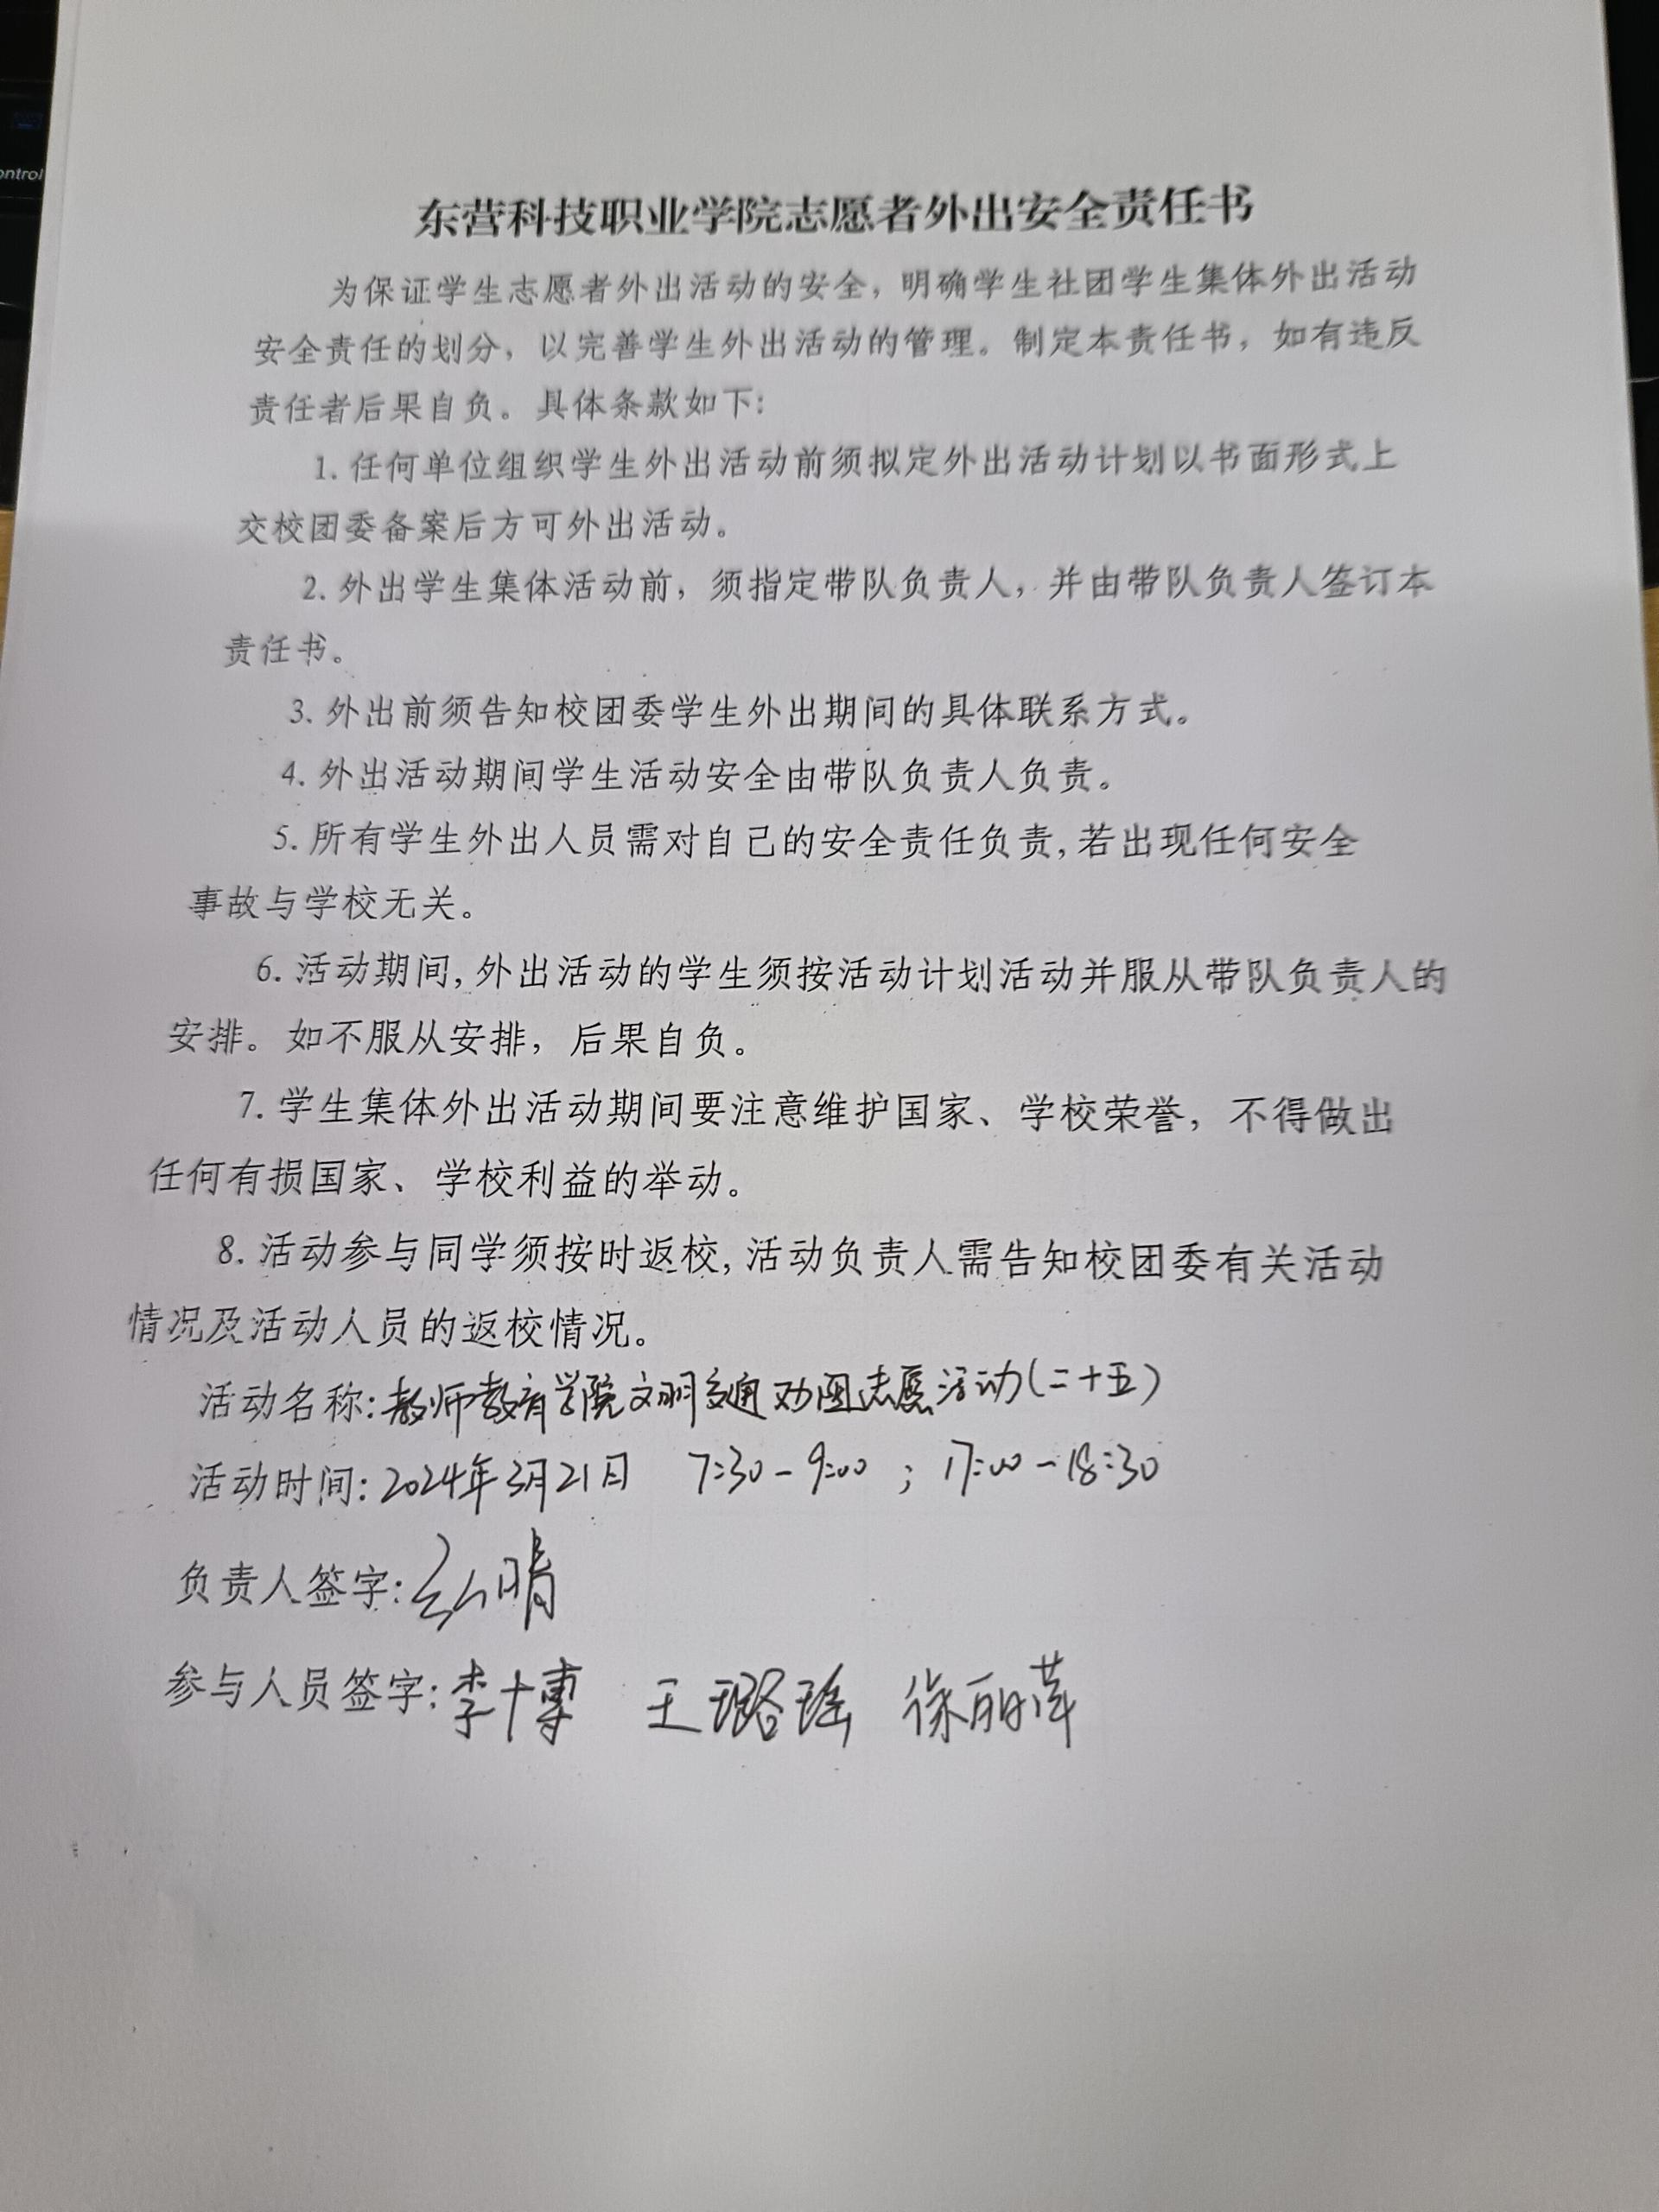 ontrol
东营科技职业学院志愿者外出安全责任书
为保证学生志愿者外出活动的安全，明确学生社团学生集体外出活动
安全责任的划分，以完善学生外出活动的管理。制定本责任书，如有违反
责任者后果自负。具体条款如下：
1. 任何单位组织学生外出活动前须拟定外出活动计划以书面形式上
交校团委备案后方可外出活动。
2. 外出学生集体活动前，须指定带队负责人，并由带队负责人签订本
责任书。
3. 外出前须告知校团委学生外出期间的具体联系方式。
4. 外出活动期间学生活动安全由带队负责人负责。
5. 所有学生外出人员需对自己的安全责任负责,若出现任何安全
事故与学校无关。
6. 活动期间,外出活动的学生须按活动计划活动并服从带队负责人的
安排。如不服从安排，后果自负。
7. 学生集体外出活动期间要注意维护国家、学校荣誉，不得做出
任何有损国家、学校利益的举动。
8. 活动参与同学须按时返校,活动负责人需告知校团委有关活动
情况及活动人员的返校情况。
活动名称：教师教育学院文明交通劝阻志愿活动(二十五)
活动时间：2024年3月21日 7:30-9:00；17:00-18:30
负责人签字：晴
参与人员签字：李博 王璐瑶 徐丽萍